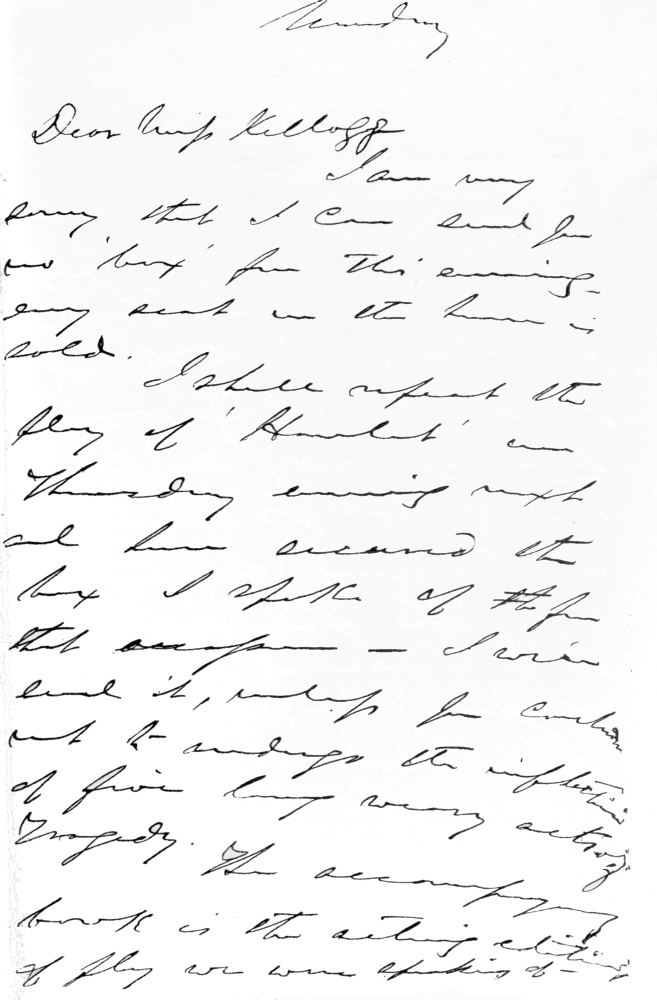 Dear Miss Kellogg
I am very
sorry that I can send you
no 'box' for this evening –
every seat in the house is
sold.
I shall repeat the
play of 'Hamlet' on
Thursday evening next
and have secured the
box I spoke of for
that occasion — I will
send it, unless you conclude
not to undergo the infliction
of five long weary acts of
Tragedy.
The accompanying
book is the acting edition
of play we were speaking of –